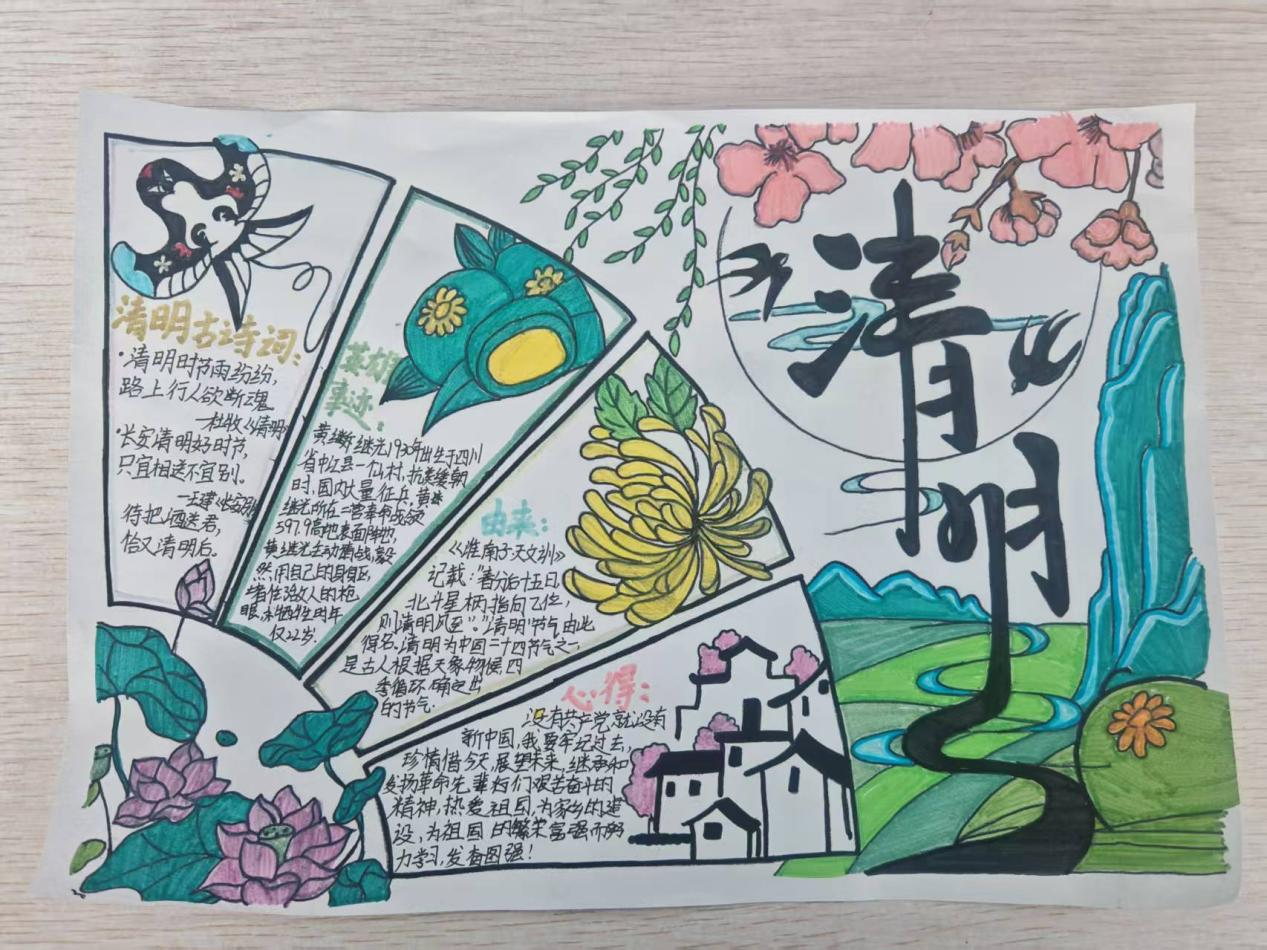 清明
清明古诗词:
·清明时节雨纷纷,
路上行人欲断魂
—杜牧《清明》
·长安清明好时节,
只宜相送不宜别。
—王建《长安别》
待把酒送君,
恰又清明后。
英雄
事迹:
黄继光1930年出生于四川
省中江县一个山村,抗美援朝
时,国内大量征兵,黄
继光所在二营奉命
597.9高地表面阵地,
黄继光主动请战,毅
然用自己的身躯,
堵住敌人的枪
眼,牺牲时年
仅22岁.
由来:
《淮南子·天文训》
记载:"春分后十五日,
北斗星柄指向乙位,
则清明风至"."清明"节气由此
得名.清明为中国二十四节气之一,
是古人根据天象物候四
季循环,确定出
的节气.
心得:
没有共产党,就没有
新中国,我要牢记过去,
珍惜今天,展望未来,继承和
发扬革命先辈们艰苦奋斗的
精神,热爱祖国,为家乡的建
设,为祖国的繁荣富强而努
力学习,发奋图强!